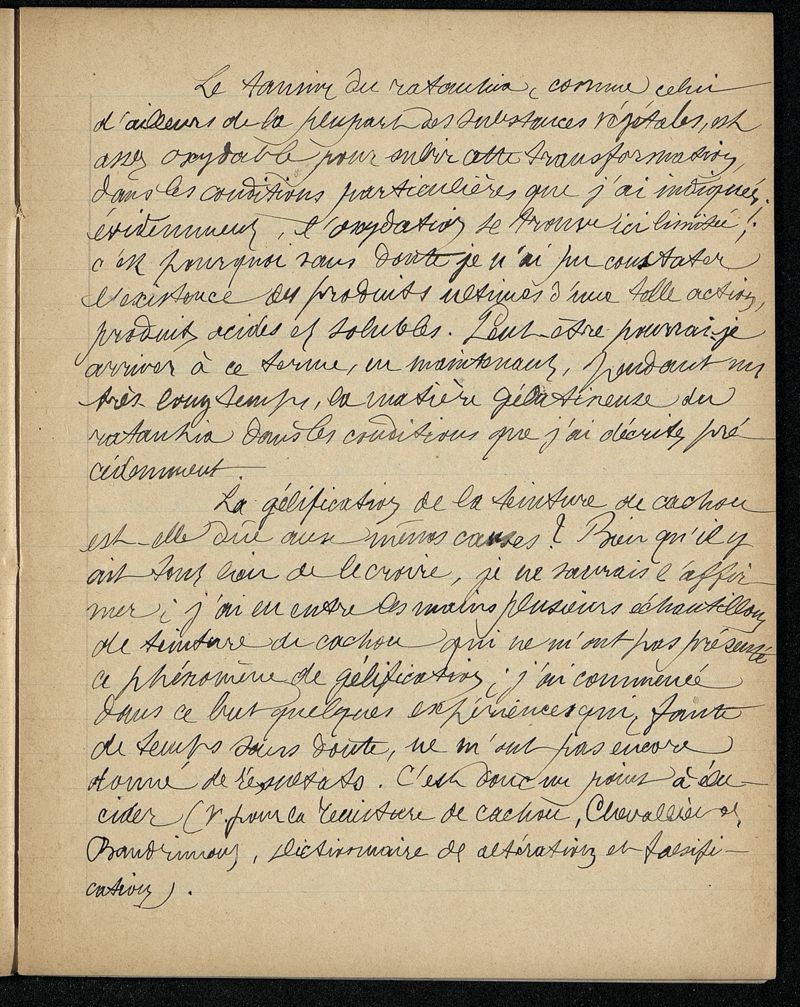 Le tannin du ratanhia, comme celui
d'ailleurs de la plupart des substances végétales, est
assez oxydable pour subir cette transformation,
dans les conditions particulières que j'ai indiquées.
évidemment, l'oxydation se trouve ici limitée;
c'est pourquoi sans doute je n'ai pu constater
l'existence des produits ultimes d'une telle action,
produits acides et solubles. Peut-être pourrai-je
arriver à ce terme, en maintenant, pendant un
très long temps, la matière gélatineuse du
ratanhia dans les conditions que j'ai décrites pré
cédemment.
La gélification de la teinture de cachou
est-elle due aux mêmes causes? Bien qu'il y
ait tout lieu de le croire, je ne saurais l'affir-
mer; j'ai eu entre les mains plusieurs échantillons
de teinture de cachou qui ne m'ont pas présenté
ce phénomène de gélification; j'ai commencé
dans ce but quelques expériences qui, faute
de temps sans doute, ne m'ont pas encore
donné de résultats. C'est donc un point à élu-
cider (V. pour la teinture de cachou, Chevallier et
Baudrimont, Dictionnaire de altérations et falsifi-
cations).